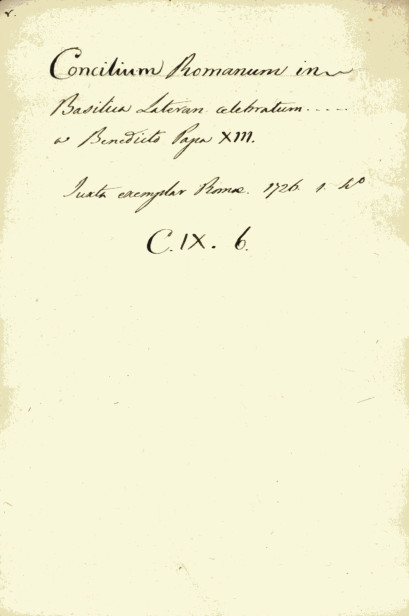 r.
Concilium Romanum in
Basilica Lateran. celebratum.....
a Benedicto Papa XIII.
Juxta exemplar Romae. 1726. 1. 4º
C. IX. 6.